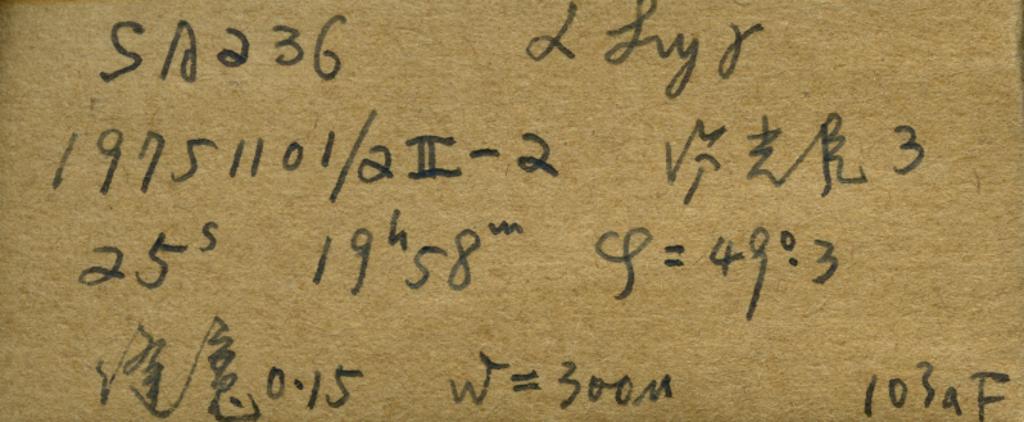 SA236 α Lyr
19751101/2 II-2 3
25ˢ 19ʰ58ᵐ φ=49°.3
缝宽0.15 w=300μ 103aF